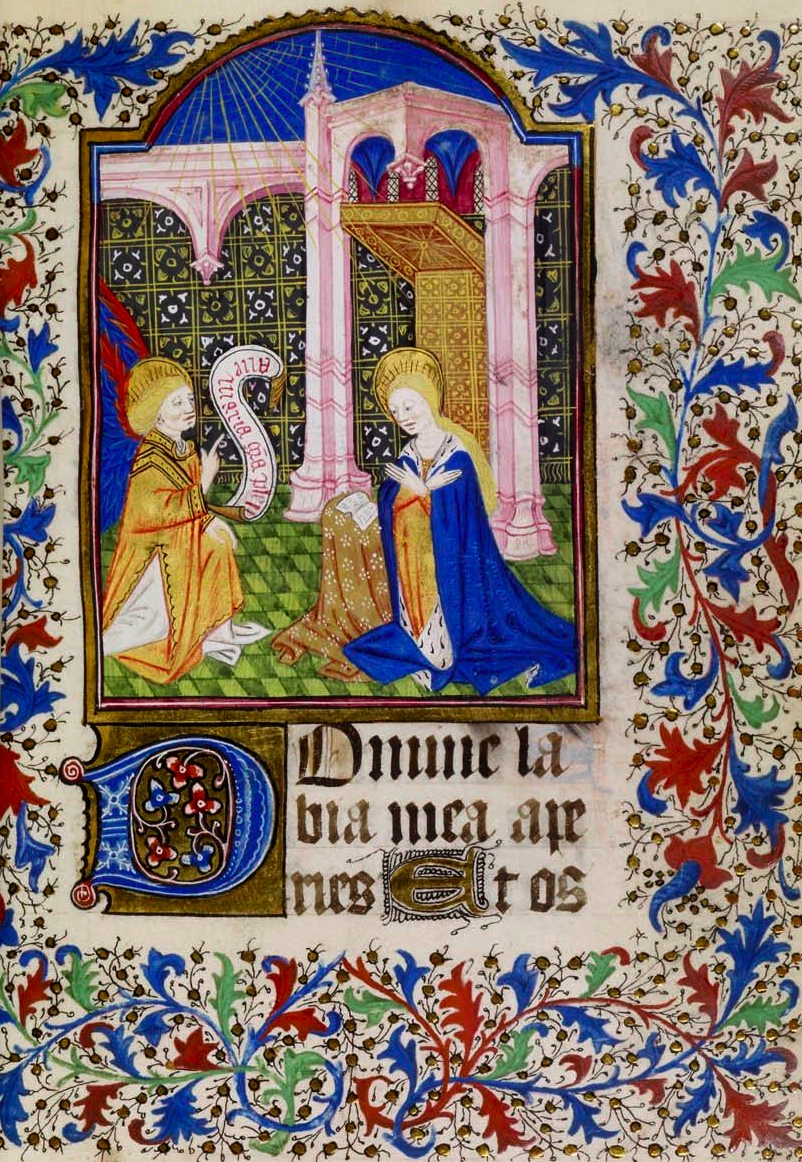 aue maria gra plena
DOmine la
bia mea ape
ries Et os